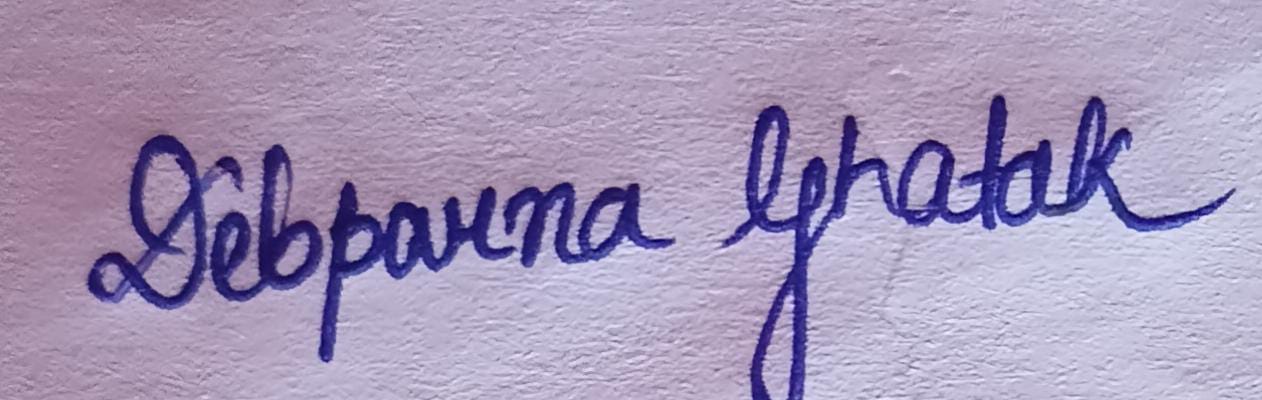 Debparna Ghatak